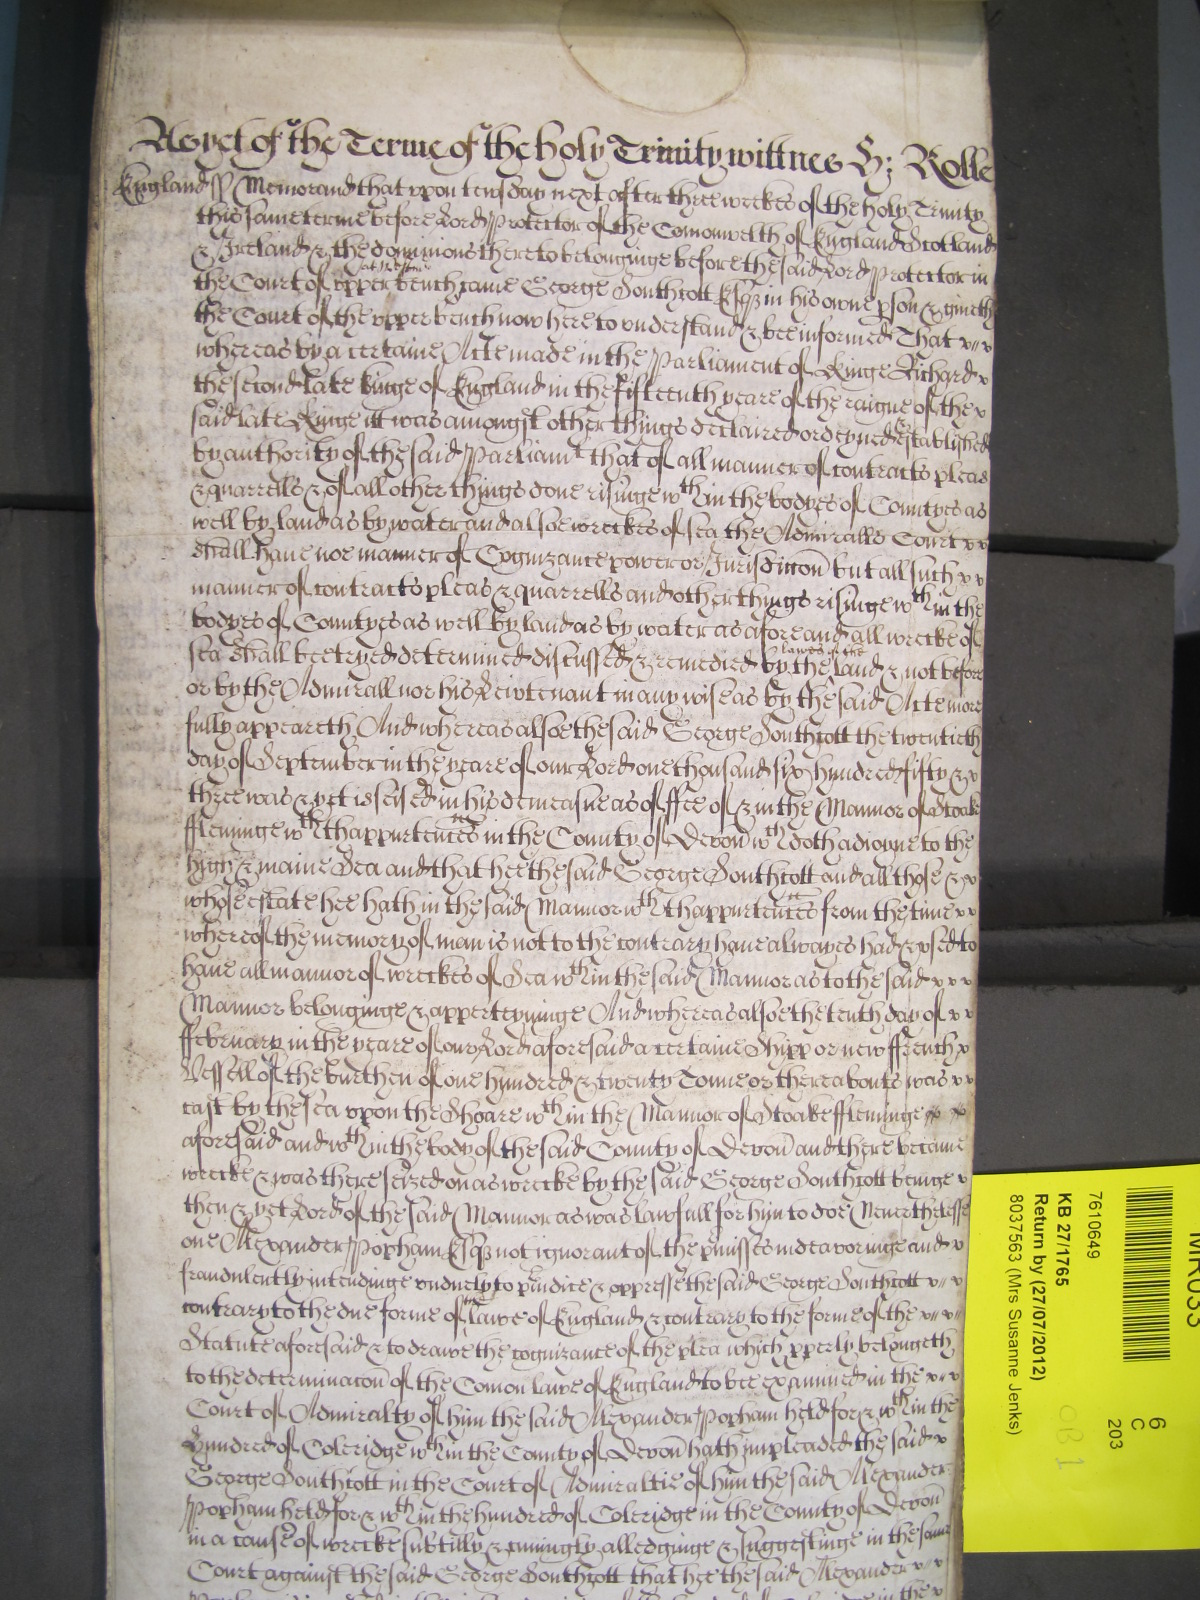 As yet of the Terme of the holy Trinity wittnes H: Rolle
England ss Memorand that upon tewsday next after three weekes of the holy Trinity
this same terme before Lord Protector of the Comonwelth of England Scotland
& Ireland & the dominions thereto belonginge before the said Lord Protector in
at Westmr
the Court of upper bench came George Southcott Esqr in his owne pson & giveth
the Court of the upper bench now here to understand & bee informed That
whereas by a certaine Acte made in the Parliament of Kinge Richard
the second late kinge of England in the fifteenth yeare of the raigne of the
said late Kinge itt was amongst other things declaired ordeyned & established
by authority of the said Parliamt that of all manner of contracts pleas
& quarrells & of all other things done risinge wthin the bodyes of Countyes as
well by land as by water and alsoe wreckes of sea the Admiralls Court
shall have noe manner of Cognizance power or Jurisdiccon but all such
manner of contracts pleas & quarrells and other things risinge wthin the
bodyes of Countyes as well by land as by water as afore and all wrecke of
lawes of the
sea shall bee tryed determined discussed & remedied by the land & not before
or by the Admirall nor his Leiwtenant in any wise as by the said Acte more
fully appeareth And whereas alsoe the said George Southcott the twentieth
day of September in the yeare of our Lord one thousand six hundred fifty &
three was & yet is seised in his demeasne as of ffee of & in the Mannor of Stoake
ffleminge wth thappurtences in the County of Devon wch doth adioyne to the
high & maine Sea and that hee the said George Southcott and all those
whose estate hee hath in the said Mannor wth thappurtences from the time
whereof the memory of man is not to the contrary have alwayes had & used to
have all mannor of wreckes of Sea wthin the said Mannor as to the said
Mannor belonginge & apperteyninge And whereas alsoe the tenth day of
ffebruary in the yeare of our Lord aforesaid a certaine Shipp or new ffrench
Vessell of the burthen of one hundred & twenty Tonne or thereabouts was
cast by the sea upon the Shoare wthin the Mannor of Stoake ffleminge
aforesaid and wthin the body of the said County of Devon and there became
wrecke & was there seized on as wrecke by the said George Southcott beinge
then & yet Lord of the said Mannor as was lawfull for him to doe Neverthelesse
one Alexander Popham Esqr not ignorant of the pmisses indeavoringe and
fraudulently intendinge unduely to piudice & oppresse the said George Southcott
the
contrary to the due forme of lawe of England & contrary to the forme of the
Statute aforesaid & to drawe the cognizance of the plea which pperly belongeth
to the determinacon of the Comon lawe of England to bee examined in the
Court of Admiralty of him the said Alexander Popham held for & wthin the
hundred of Coleridge wthin the County of Devon hath impleaded the said
George Southcott in the Court of Admiraltie of him the said Alexander
Popham held for & wthin the hundred of Coleridge in the County of Devon
in a cause of wrecke subtilly & cuningly alledginge & suggestinge in the same
Court against the said George Southcott that hee the said Alexander
MR033
6
C
203
7610649
KB 27/1765
Return by (27/07/2012)
8037563 (Mrs Susanne Jenks)
OB 1